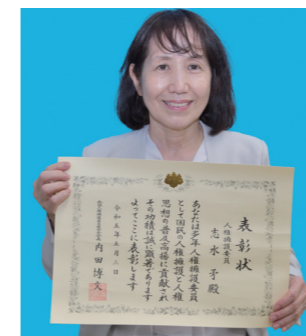 表彰状
人権擁護委員
志水子殿
あなたは多年人権擁護委員
として国民の人権擁護と人権
思想の普及高揚に貢献され
その功績は誠に顕著であります
よってここに表彰します
令和五年五月三日
内田博文